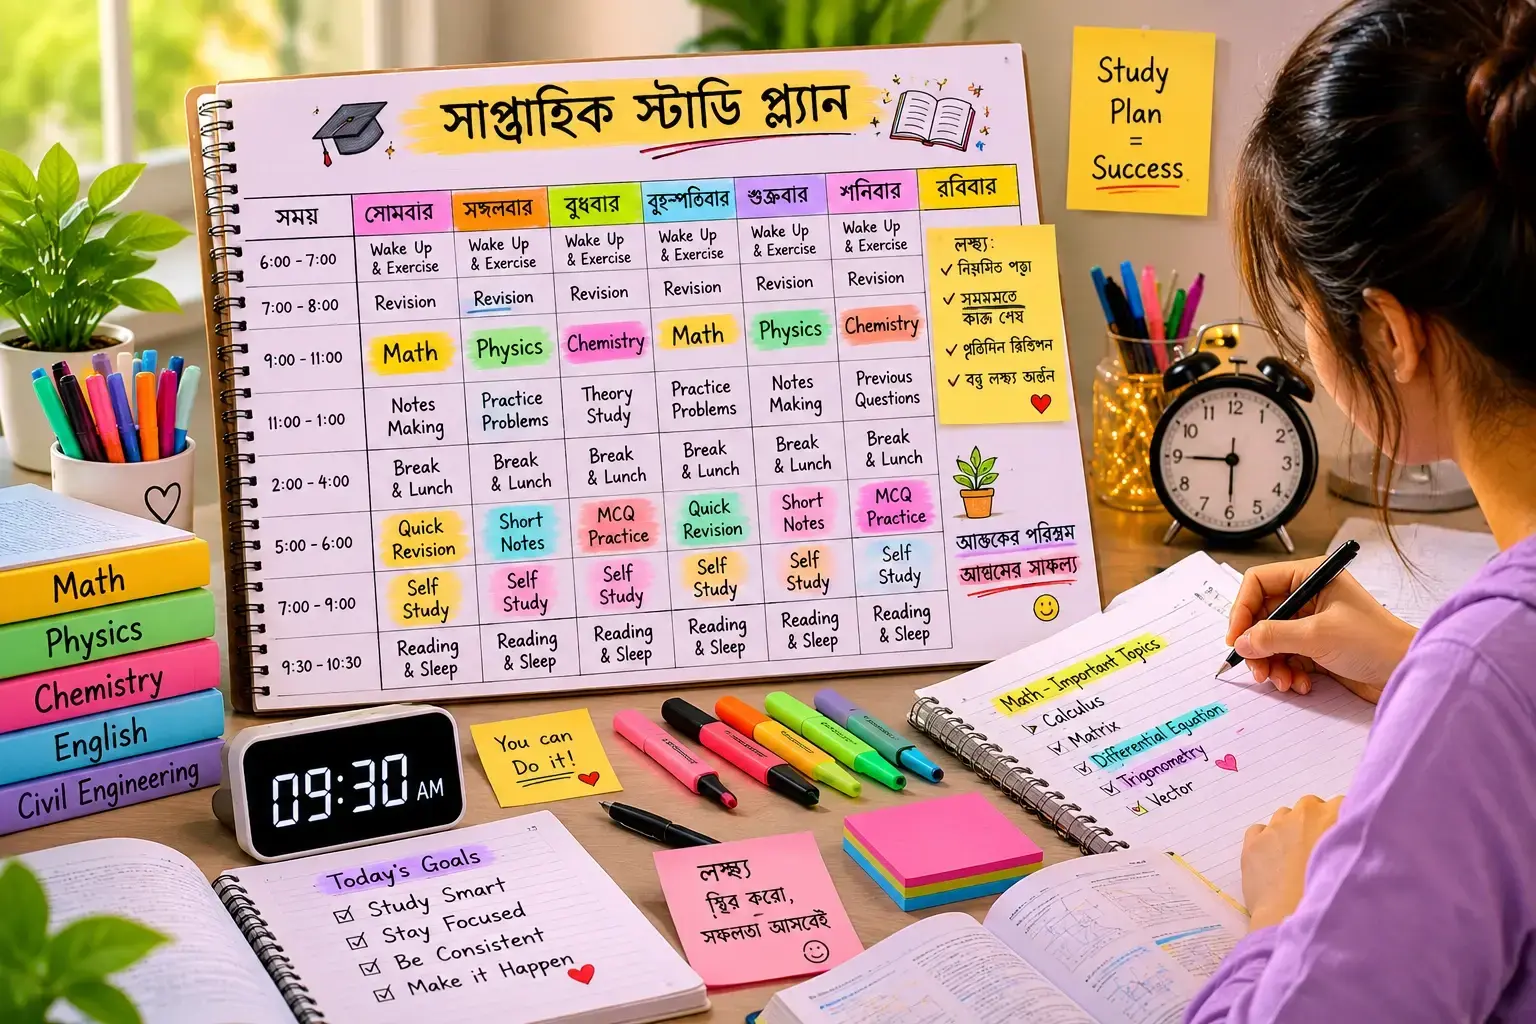 সাপ্তাহিক স্টাডি প্ল্যান
সময় সোমবার মঙ্গলবার বুধবার বৃহস্পতিবার শুক্রবার শনিবার রবিবার
6:00 - 7:00 Wake Up & Exercise Wake Up & Exercise Wake Up & Exercise Wake Up & Exercise Wake Up & Exercise Wake Up & Exercise
7:00 - 8:00 Revision Revision Revision Revision Revision Revision
9:00 - 11:00 Math Physics Chemistry Math Physics Chemistry
11:00 - 1:00 Notes Making Practice Problems Theory Study Practice Problems Notes Making Previous Questions
2:00 - 4:00 Break & Lunch Break & Lunch Break & Lunch Break & Lunch Break & Lunch Break & Lunch
5:00 - 6:00 Quick Revision Short Notes MCQ Practice Quick Revision Short Notes MCQ Practice
7:00 - 9:00 Self Study Self Study Self Study Self Study Self Study Self Study
9:30 - 10:30 Reading & Sleep Reading & Sleep Reading & Sleep Reading & Sleep Reading & Sleep Reading & Sleep
লক্ষ্য:
✓ নিয়মিত পড়া
✓
কাজ শেষ
✓ প্রতিদিন রিভিশন
✓ লক্ষ্য অর্জন
পরিশ্রম
সাফল্য
Study
Plan
=
Success
12
11
10
9
8
7
6
5
4
3
2
1
Math
Physics
Chemistry
English
Civil Engineering
09:30 AM
You can
Do it!
Today's Goals
☑ Study Smart
☑ Stay Focused
☑ Be Consistent
☑ Make it Happen
লক্ষ্য
স্থির করো,
সফলতা আসবেই
Math - Important Topics
Calculus
☑ Matrix
☑ Differential Equation
☑ Trigonometry
☑ Vector